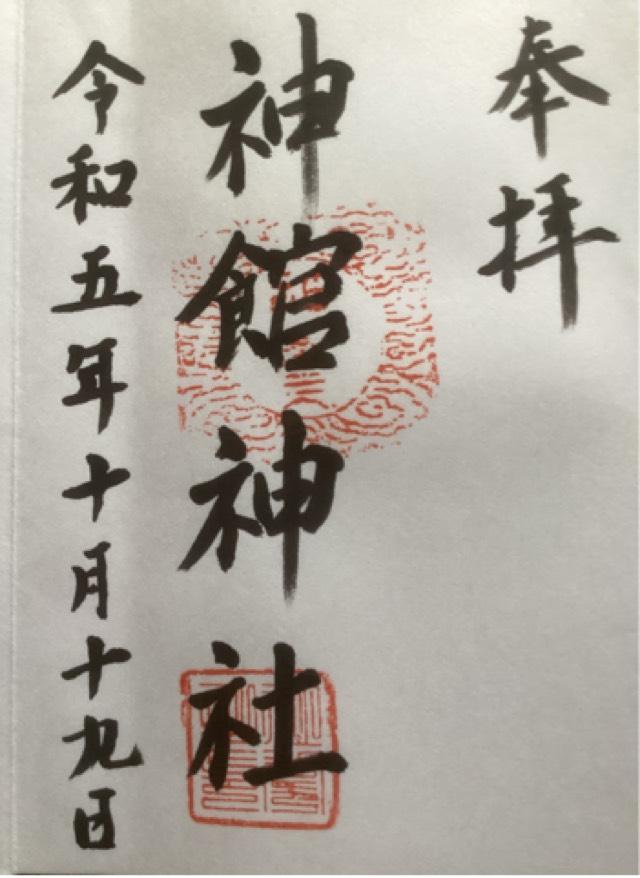 奉拝
神館神社
令和五年十月十九日